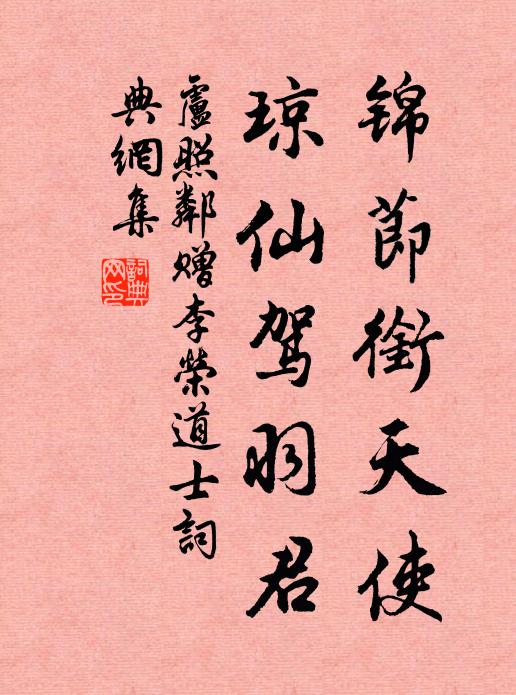 锦節銜天使
琼仙驾羽君
盧照鄰赠李榮道士詞
典網集
詞典网印